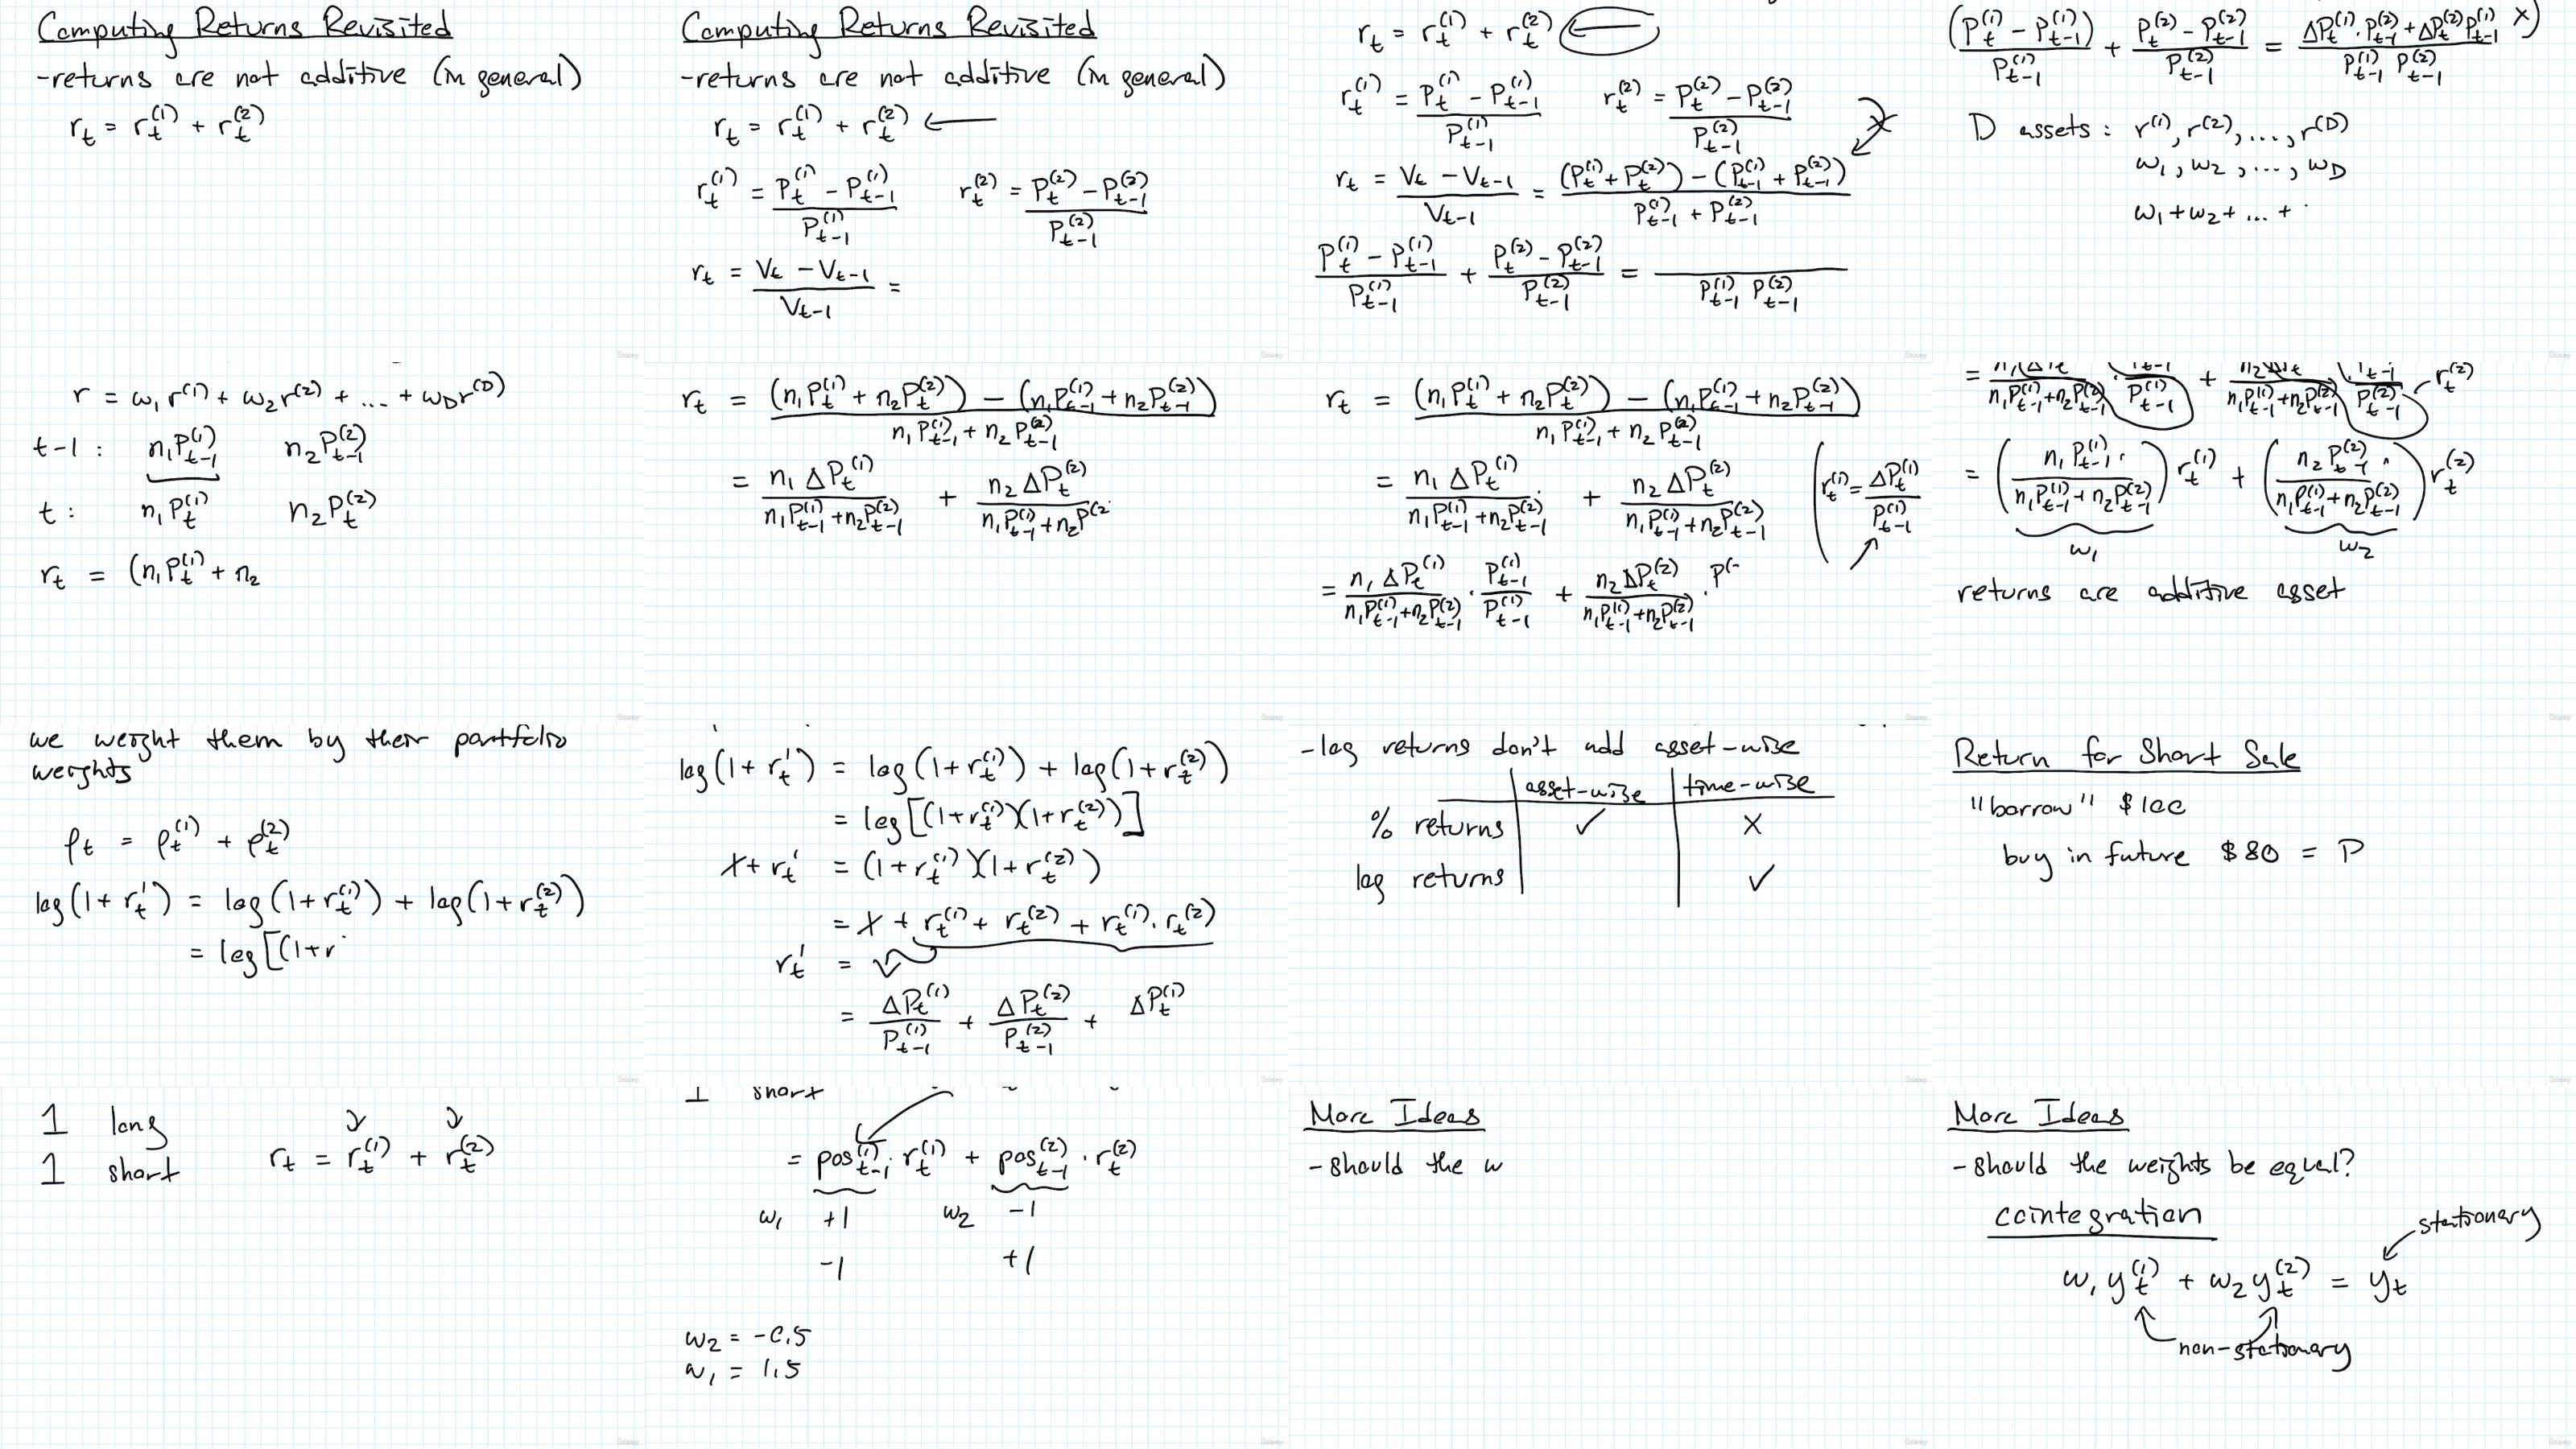 Computing Returns Revisited
-returns are not additive (in general)
r_t = r_t^(1) + r_t^(2)
Computing Returns Revisited
-returns are not additive (in general)
r_t = r_t^(1) + r_t^(2) ←
r_t^(1) = (P_t^(1) - P_{t-1}^(1)) / P_{t-1}^(1)    r_t^(2) = (P_t^(2) - P_{t-1}^(2)) / P_{t-1}^(2)
r_t = (V_t - V_{t-1}) / V_{t-1} =
r_t = r_t^(1) + r_t^(2) ←
r_t^(1) = (P_t^(1) - P_{t-1}^(1)) / P_{t-1}^(1)    r_t^(2) = (P_t^(2) - P_{t-1}^(2)) / P_{t-1}^(2)
r_t = (V_t - V_{t-1}) / V_{t-1} = ((P_t^(1) + P_t^(2)) - (P_{t-1}^(1) + P_{t-1}^(2))) / (P_{t-1}^(1) + P_{t-1}^(2))
(P_t^(1) - P_{t-1}^(1)) / P_{t-1}^(1) + (P_t^(2) - P_{t-1}^(2)) / P_{t-1}^(2) = / P_{t-1}^(1) P_{t-1}^(2)
(P_t^(1) - P_{t-1}^(1)) / P_{t-1}^(1) + (P_t^(2) - P_{t-1}^(2)) / P_{t-1}^(2) = (ΔP_t^(1) · P_{t-1}^(2) + ΔP_t^(2) P_{t-1}^(1)) / P_{t-1}^(1) P_{t-1}^(2) X)
D assets: r^(1), r^(2), ..., r^(D)
w_1, w_2, ..., w_D
w_1 + w_2 + ... +
r = w_1 r^(1) + w_2 r^(2) + ... + w_D r^(D)
t-1: n_1 P_{t-1}^(1)    n_2 P_{t-1}^(2)
t: n_1 P_t^(1)    n_2 P_t^(2)
r_t = (n_1 P_t^(1) + n_2
r_t = ((n_1 P_t^(1) + n_2 P_t^(2)) - (n_1 P_{t-1}^(1) + n_2 P_{t-1}^(2))) / (n_1 P_{t-1}^(1) + n_2 P_{t-1}^(2))
= n_1 ΔP_t^(1) / (n_1 P_{t-1}^(1) + n_2 P_{t-1}^(2)) + n_2 ΔP_t^(2) / (n_1 P_{t-1}^(1) + n_2 P^(2
r_t = ((n_1 P_t^(1) + n_2 P_t^(2)) - (n_1 P_{t-1}^(1) + n_2 P_{t-1}^(2))) / (n_1 P_{t-1}^(1) + n_2 P_{t-1}^(2))
= n_1 ΔP_t^(1) / (n_1 P_{t-1}^(1) + n_2 P_{t-1}^(2)) + n_2 ΔP_t^(2) / (n_1 P_{t-1}^(1) + n_2 P_{t-1}^(2))    (r_t^(1) = ΔP_t^(1) / P_{t-1}^(1)
= n_1 ΔP_t^(1) / (n_1 P_{t-1}^(1) + n_2 P_{t-1}^(2)) · P_{t-1}^(1) / P_{t-1}^(1) + n_2 ΔP_t^(2) / (n_1 P_{t-1}^(1) + n_2 P_{t-1}^(2)) · P^(
r_t^(2)
= (n_1 P_{t-1}^(1) / (n_1 P_{t-1}^(1) + n_2 P_{t-1}^(2))) r_t^(1) + (n_2 P_{t-1}^(2) / (n_1 P_{t-1}^(1) + n_2 P_{t-1}^(2))) r_t^(2)
w_1    w_2
returns are additive asset
we weight them by their portfolio
weights
ρ_t = ρ_t^(1) + ρ_t^(2)
log(1 + r_t') = log(1 + r_t^(1)) + log(1 + r_t^(2))
= log[(1+r
log(1 + r_t') = log(1 + r_t^(1)) + log(1 + r_t^(2))
= log[(1 + r_t^(1))(1 + r_t^(2))]
1 + r_t' = (1 + r_t^(1))(1 + r_t^(2))
= 1 + r_t^(1) + r_t^(2) + r_t^(1) · r_t^(2)
r_t' =
= ΔP_t^(1) / P_{t-1}^(1) + ΔP_t^(2) / P_{t-1}^(2) + ΔP_t^(1)
-log returns don't add asset-wise
asset-wise    time-wise
% returns    ✓    X
log returns    ✓
Return for Short Sale
"borrow" $100
buy in future $80 = P
1 long
1 short    r_t = r_t^(1) + r_t^(2)
1 short
= pos_{t-1}^(1) · r_t^(1) + pos_{t-1}^(2) · r_t^(2)
w_1 +1    w_2 -1
-1    +1
w_2 = -0.5
w_1 = 1.5
More Ideas
-should the w
More Ideas
-should the weights be equal?
cointegration
stationary
w_1 y_t^(1) + w_2 y_t^(2) = y_t
non-stationary